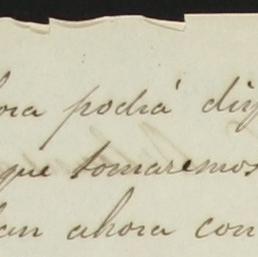 ora podrá dis
que tomaremos
lan ahora con